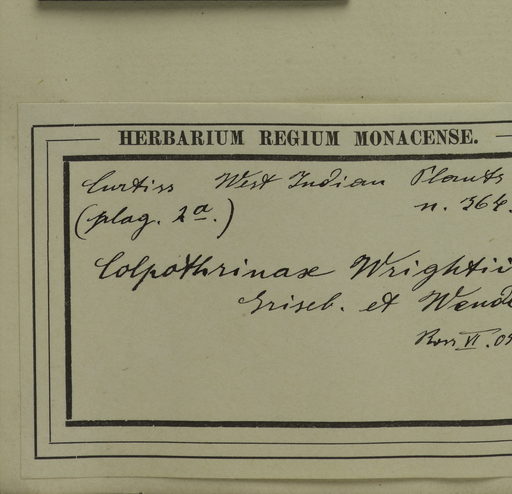 HERBARIUM REGIUM MONACENSE.
Curtiss West Indian Plants
(plag. 2a.) n. 364.
Colpothrinax Wrightii
Griseb. et Wendl
Ross VI. 09